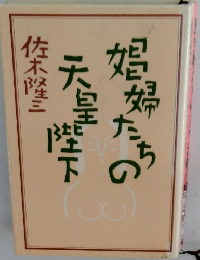 娼婦たちの
天皇陛下
佐木隆三